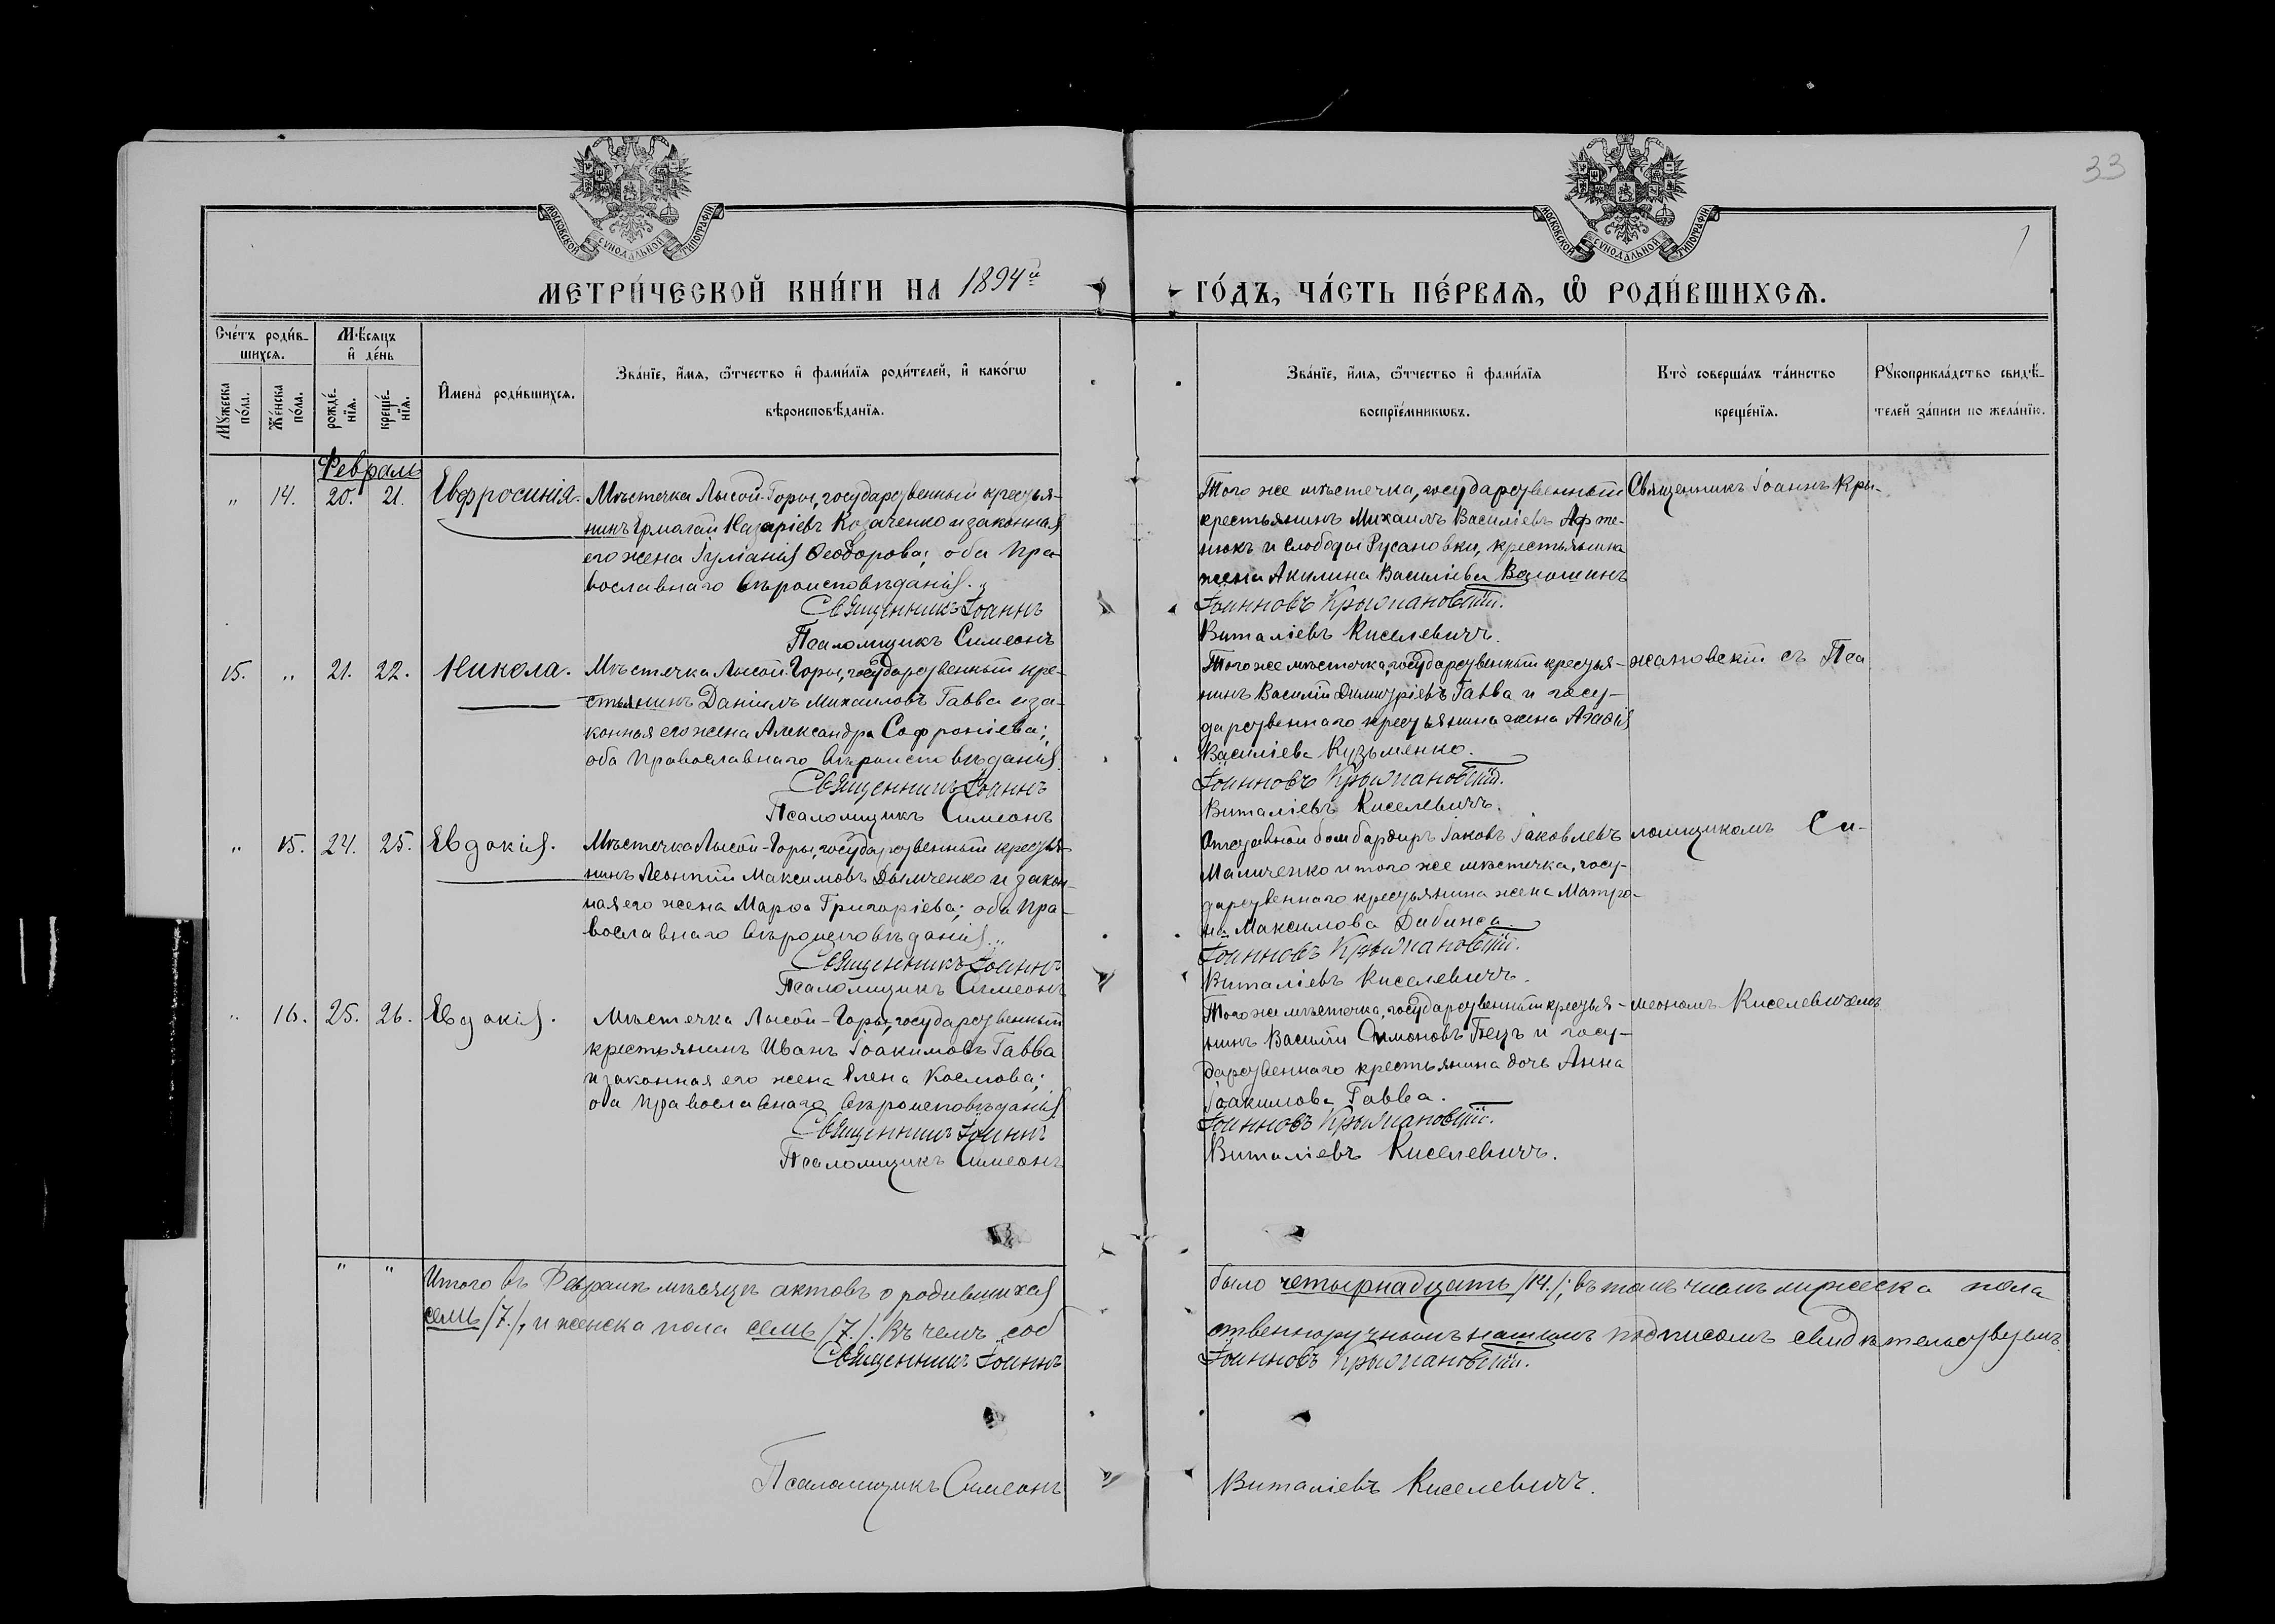 33
1
МОСКОВСКОЙ СѴНОДАЛЬНОЙ ТИПОГРАФІИ
МОСКОВСКОЙ СѴНОДАЛЬНОЙ ТИПОГРАФІИ
МЕТРИ́ЧЕСКОЙ КНИ́ГИ НА 1894й
ГО́ДЪ, ЧА́СТЬ ПЕ́РВАѦ, Ѡ҆ РОДИ́ВШИХСѦ.
Сче́тъ роди́в-
шихсѧ.
Мѣ́сѧцъ
и҆ де́нь
Мꙋ́жеска
по́ла.
Же́нска
по́ла.
рожде́-
нїѧ.
креще́-
нїѧ.
И҆мена̀ роди́вшихсѧ.
Зва́нїе, и҆́мѧ, ѻ҆́тчество и҆ фами́лїѧ роди́телей, и҆ како́гѡ
вѣроисповѣ́данїѧ.
Зва́нїе, и҆́мѧ, ѻ҆́тчество и҆ фами́лїѧ
воспрїе́мникѡвъ.
Кто̀ соверша́лъ та́инство
креще́нїѧ.
Рꙋкоприкла́дство свидѣ́-
телей за́писи по жела́нїю.
Февраль
" 14. 20. 21. Евфросинія.
Мѣстечка Лысой-Горы, государственный крестья-
нинъ Ермолай Назаріевъ Козаченко и законная
его жена Іуліанія Ѳеодорова; оба пра-
вославнаго вѣроисповѣданія.
Священникъ Іоаннъ
Псаломщикъ Симеонъ
Того же мѣстечка, государственный
крестьянинъ Михаилъ Василіевъ Афте-
нюкъ и слободы Русановки, крестьянина
жена Акилина Василіева Волошинъ
Іоанновъ Крыжановскій.
Виталіевъ Киселевичъ.
Священникъ Іоаннъ Кры-
15. " 21. 22. Никола.
Мѣстечка Лысой-Горы, государственный кре-
стьянинъ Даніилъ Михаиловъ Гавва и за-
конная его жена Александра Софроніева;
оба православнаго вѣроисповѣданія.
Священникъ Іоаннъ
Псаломщикъ Симеонъ
Того же мѣстечка, государственный крестья-
нинъ Василій Димитріевъ Гавва и госу-
дарственнаго крестьянина жена Агафія
Василіева Кузьменко.
Іоанновъ Крыжановскій.
Виталіевъ Киселевичъ.
жановскій съ Пса
" 15. 24. 25. Евдокія.
Мѣстечка Лысой-Горы, государственный крестья-
нинъ Леонтій Максимовъ Дымченко и закон-
ная его жена Марѳа Григоріева; оба пра-
вославнаго вѣроисповѣданія.
Священникъ Іоаннъ
Псаломщикъ Симеонъ
Отставной бомбардиръ Іаковъ Іаковлевъ
Маличенко и того же мѣстечка, госу-
дарственнаго крестьянина жена Матро-
на Максимова
Іоанновъ Крыжановскій.
Виталіевъ Киселевичъ.
ломщикомъ Си-
" 16. 25. 26. Евдокія.
Мѣстечка Лысой-Горы, государственный
крестьянинъ Иванъ Іоакимовъ Гавва
и законная его жена Елена Космова;
оба православнаго вѣроисповѣданія.
Священникъ Іоаннъ
Псаломщикъ Симеонъ
Того же мѣстечка, государственный крестья-
нинъ Василій Симоновъ и госу-
дарственнаго крестьянина дочь Анна
Іоакимова Гавва.
Іоанновъ Крыжановскій.
Виталіевъ Киселевичъ.
меономъ Киселевичемъ
" " Итого въ Февралѣ мѣсяцѣ актовъ о родившихся
было четырнадцать /14./; въ томъ числѣ мужеска пола
семь /7./, и женска пола семь /7./. Въ чемъ соб
ственноручнымъ нашимъ подписомъ свидѣтельствуемъ.
Священникъ Іоаннъ
Іоанновъ Крыжановскій.
Псаломщикъ Симеонъ
Виталіевъ Киселевичъ.